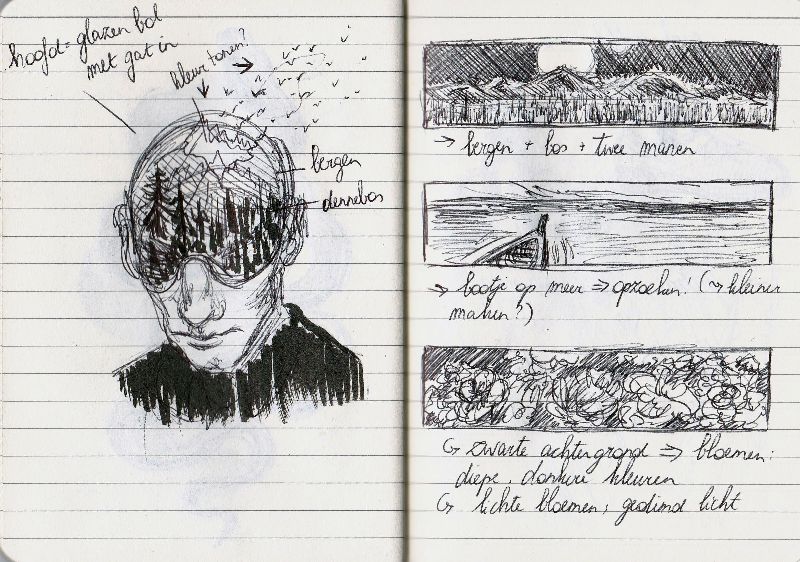 hoofd = glazen bol
met gat in
kleur tonen?
bergen
dennebos
→ bergen + bos + twee manen
→ bootje op meer ⇒ opzoeken! (↝ kleiner
maken?)
↪ zwarte achtergrond ⇒ bloemen:
diepe, donkere kleuren
↪ lichte bloemen, gedimd licht